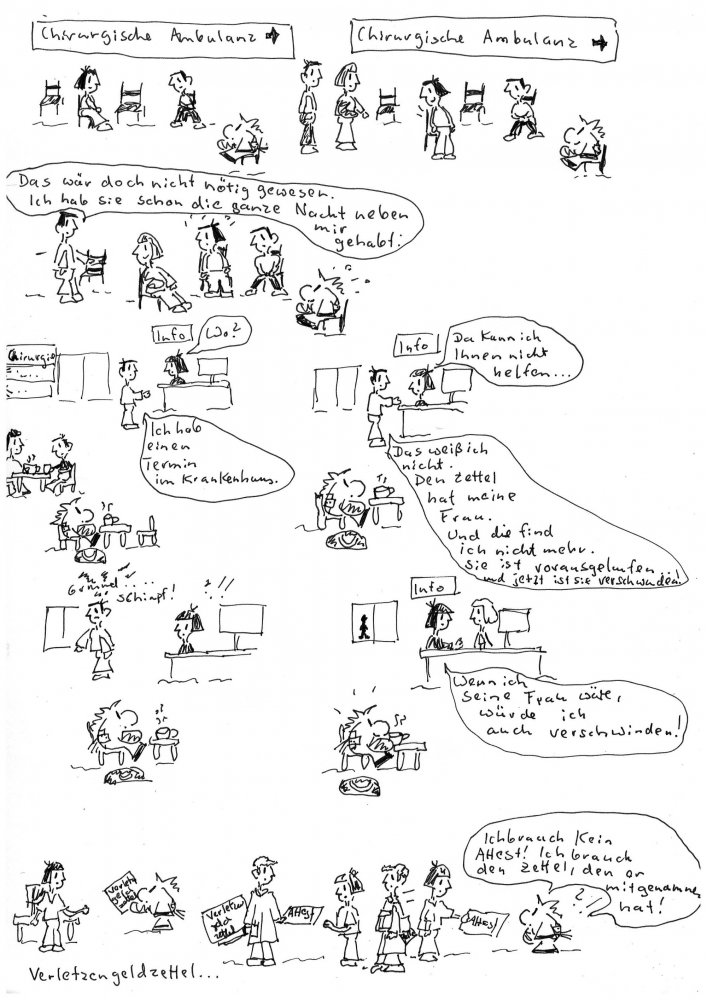 Chirurgische Ambulanz →
Chirurgische Ambulanz →
Das wär doch nicht nötig gewesen.
Ich hab sie schon die ganze Nacht neben
mir
gehabt.
Chirurgie
Info
Wo?
Ich hab
einen
Termin
im Krankenhaus.
Info
Da kann ich
Ihnen nicht
helfen...
Das weiß ich
nicht.
Den Zettel
hat meine
Frau.
Und die find
ich nicht mehr.
Sie ist vorausgelaufen
und jetzt ist sie verschwunden!
Grummel....
Schimpf!
?!!
Info
Wenn ich
seine Frau wäre,
würde ich
auch verschwinden!
Verletzten
geld
zettel
Attest
Attest
Ich brauch kein
Attest! Ich brauch
den Zettel, den er
mitgenommen
hat!
?!
Verletzengeldzettel...